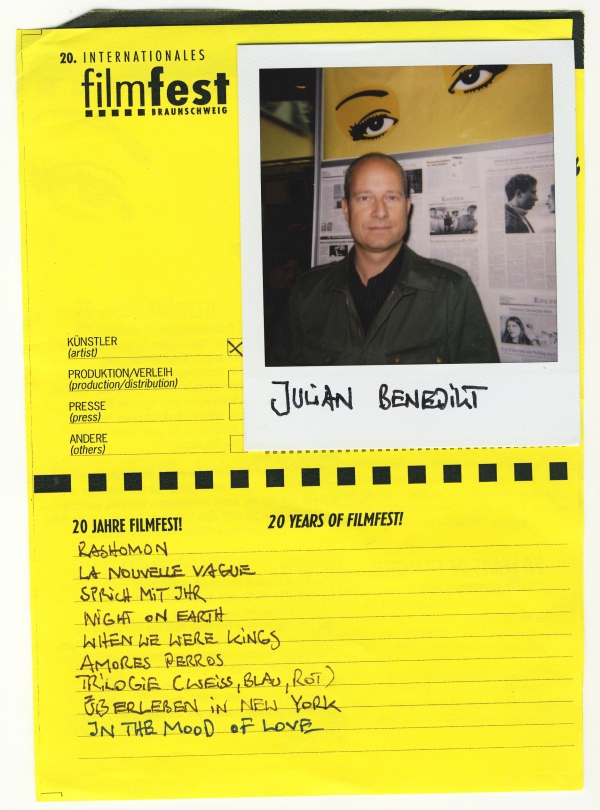 20. INTERNATIONALES
filmfest
BRAUNSCHWEIG
KULTUR
KULTUR
JULIAN BENEDIKT
KÜNSTLER
(artist)
PRODUKTION/VERLEIH
(production/distribution)
PRESSE
(press)
ANDERE
(others)
20 JAHRE FILMFEST!
20 YEARS OF FILMFEST!
RASHOMON
LA NOUVELLE VAGUE
SPRICH MIT IHR
NIGHT ON EARTH
WHEN WE WERE KINGS
AMORES PERROS
TRILOGIE (WEISS, BLAU, ROT)
ÜBERLEBEN IN NEW YORK
IN THE MOOD OF LOVE